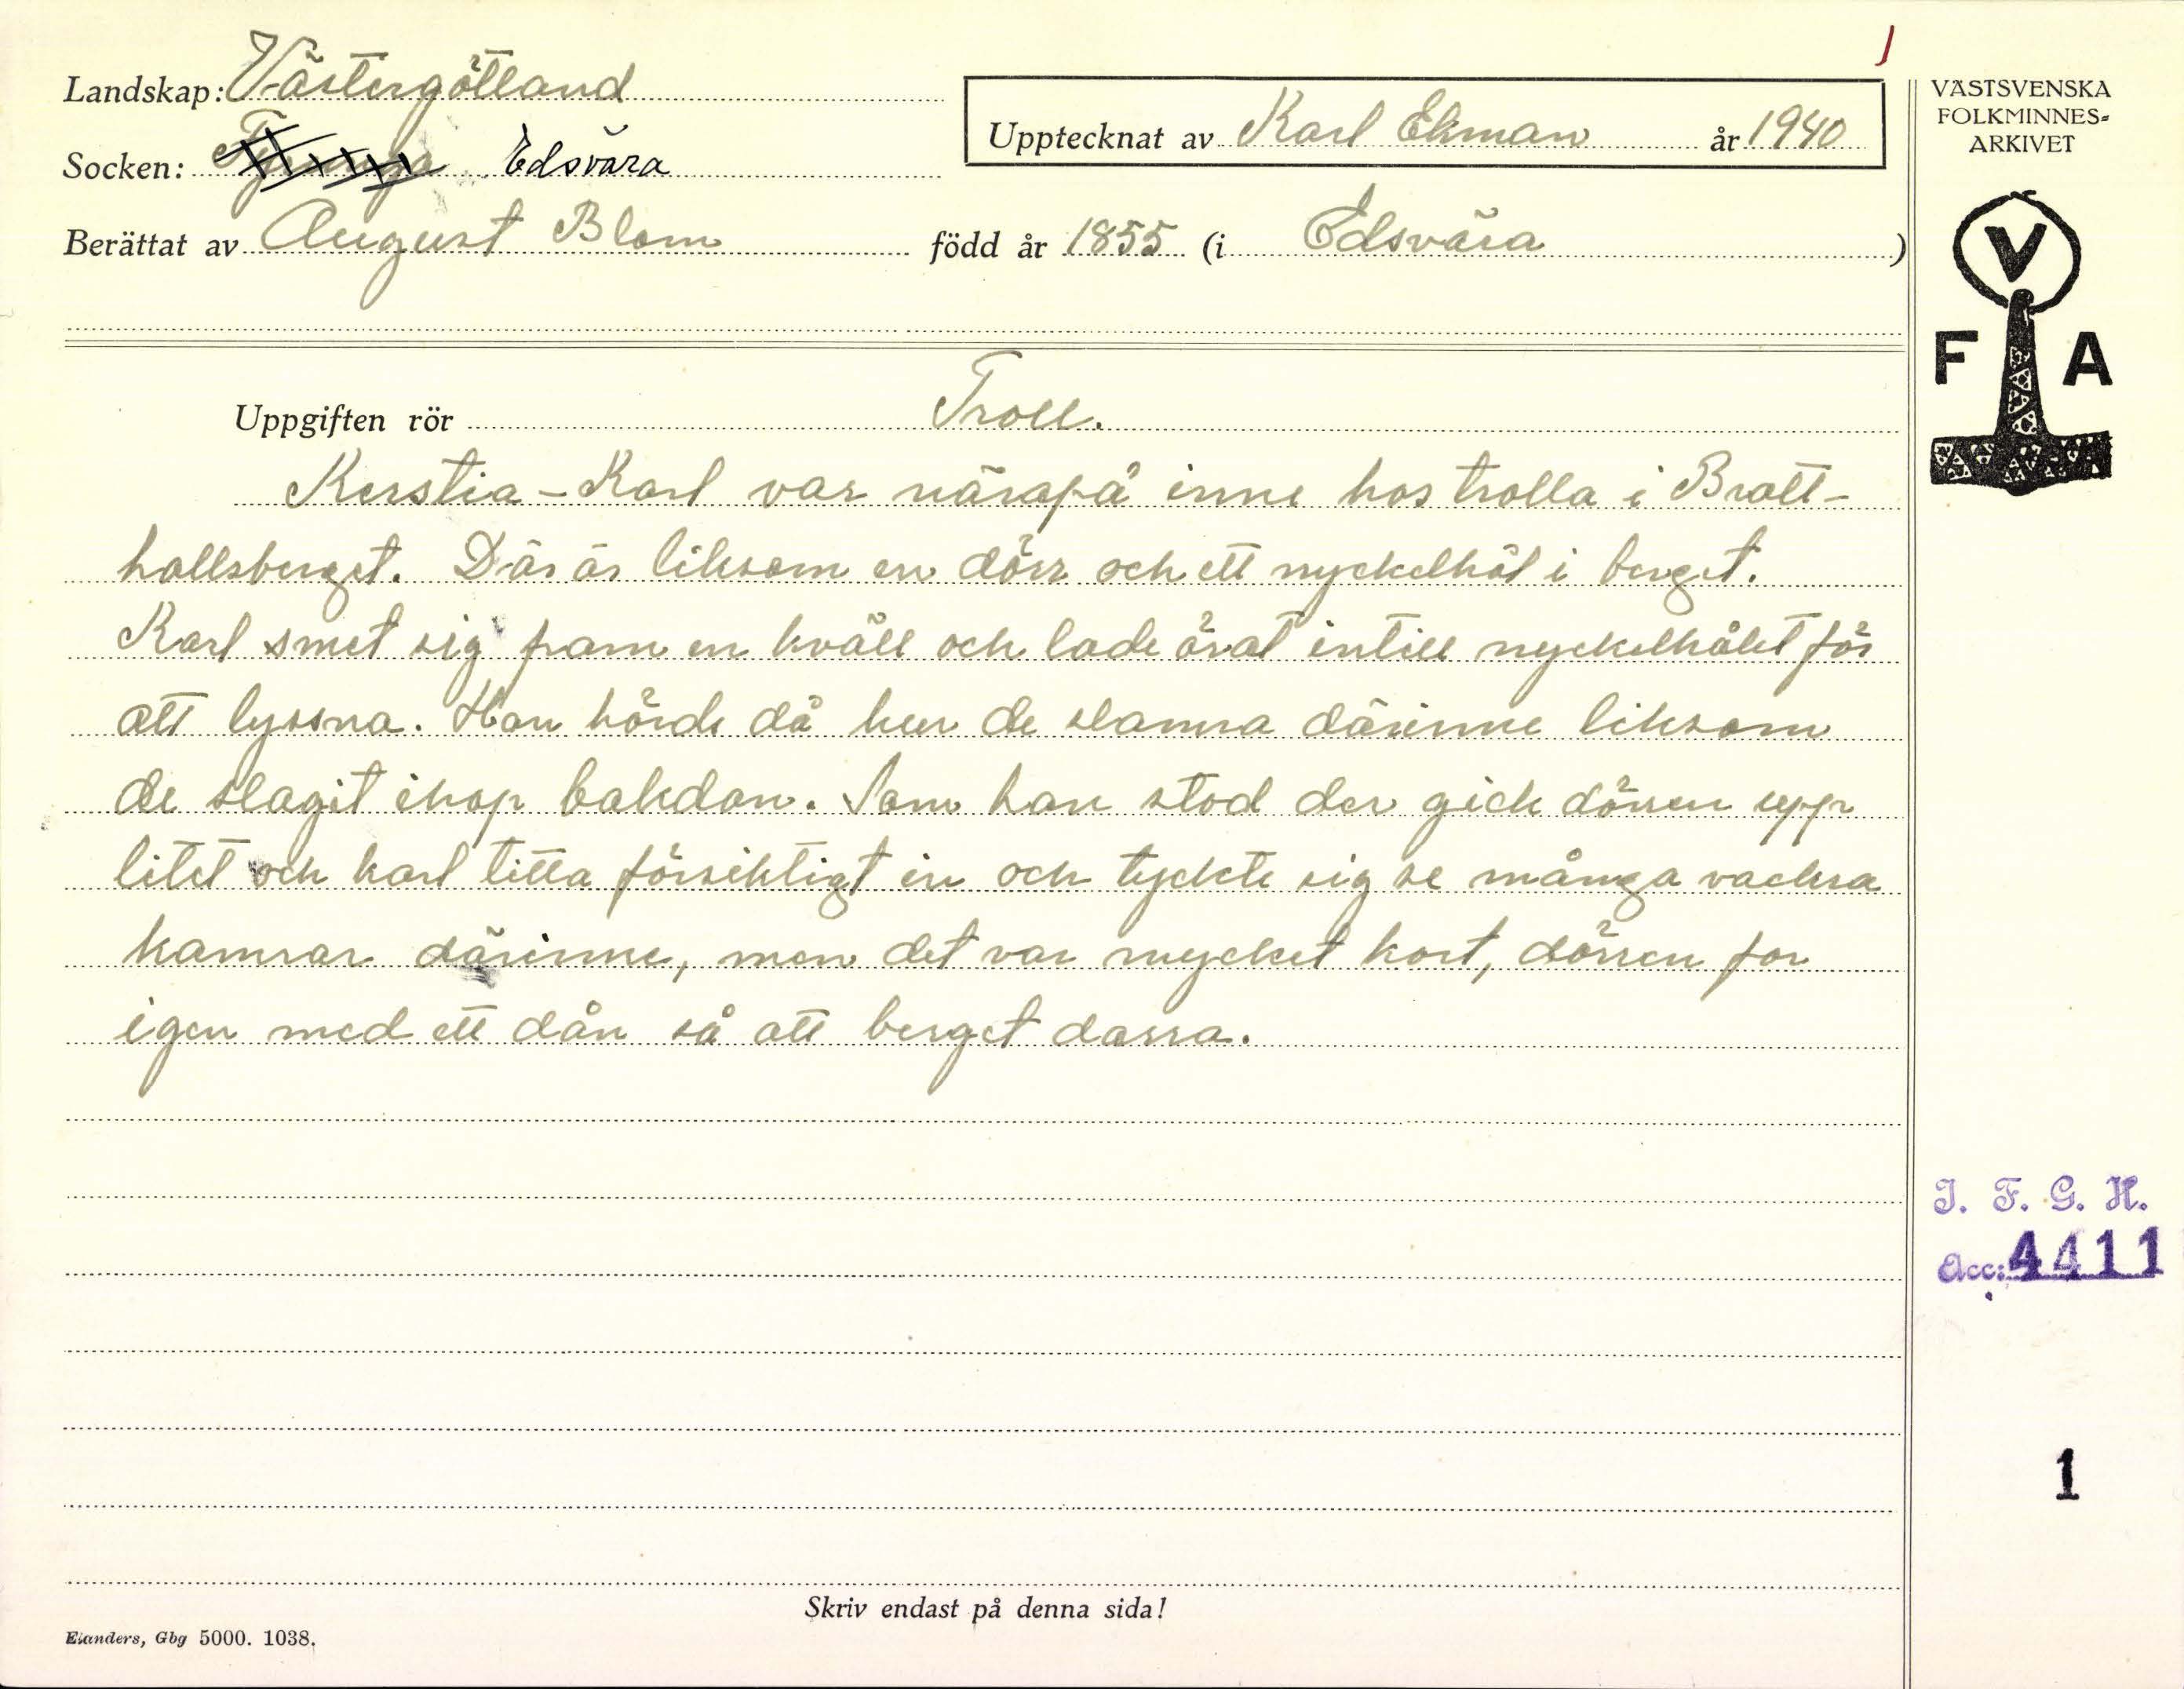 Landskap: Västergötland
Socken: Edsvära
Upptecknat av Karl Ekman år 1940
Berättat av August Blom född år 1855 (i Edsvära)
VÄSTSVENSKA
FOLKMINNES=
ARKIVET
V
F A
Uppgiften rör Troll.
Kerstia-Karl var närapå inne hos trolla i Bratt-
hallsberget. Där är liksom en dörr och ett nyckelhål i berget.
Karl smet sig fram en kväll och lade örat intill nyckelhålet för
att lyssna. Han hörde då hur de slamra därinne liksom
de slagit ihop bakdon. Som han stod der gick dörren upp
litet och karl titta försiktigt in och tyckte sig se många vackra
kamrar därinne, men det var mycket kort, dörren for
igen med ett dån så att berget darra.
I. F. G. H.
Acc: 4411
1
Skriv endast på denna sida!
Elanders, Gbg 5000. 1038.